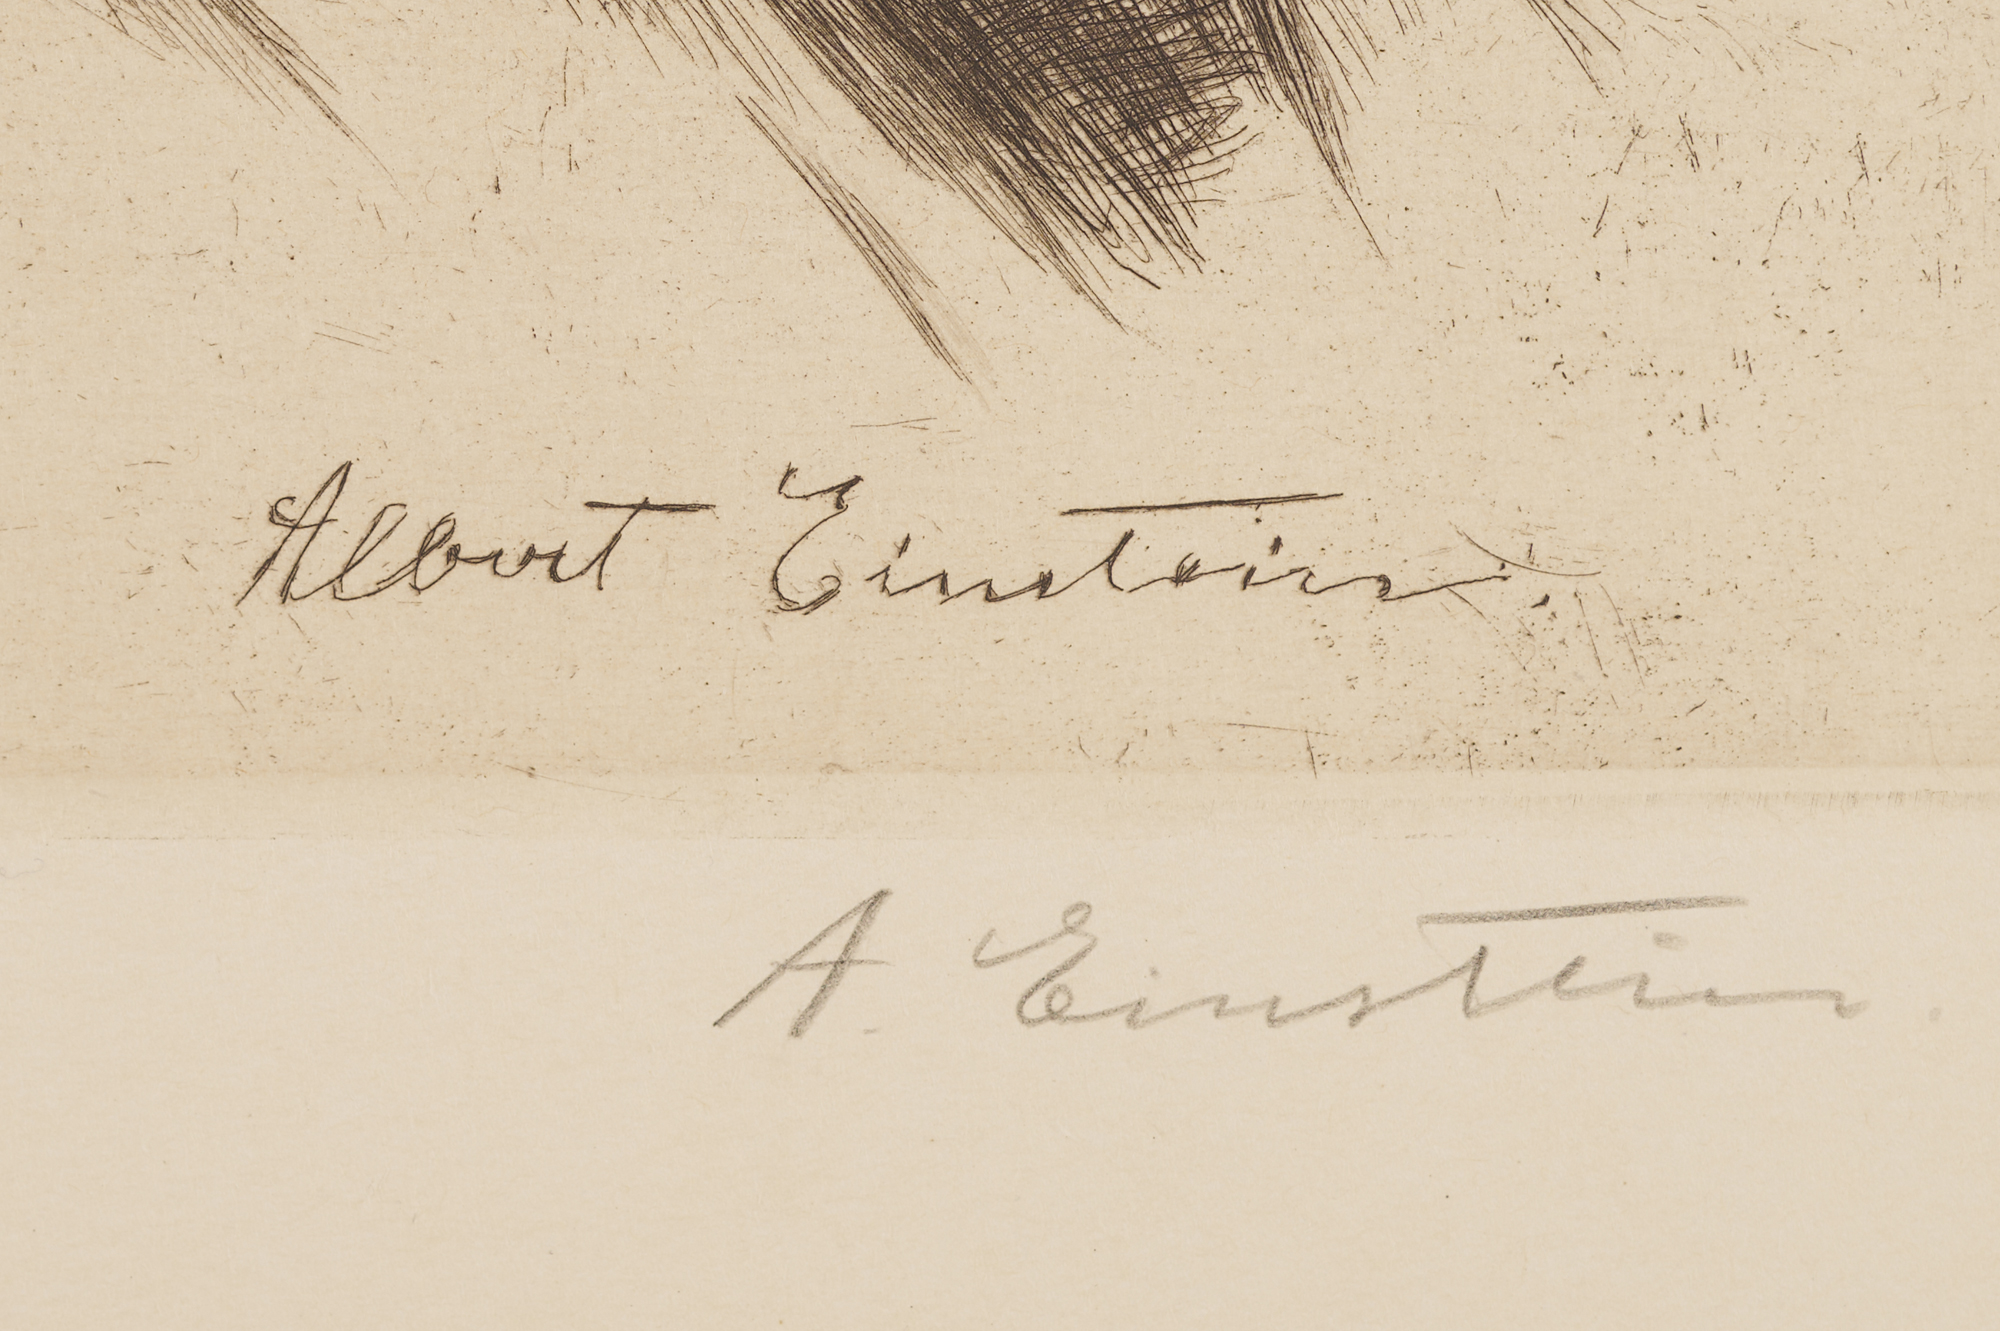 Albert Einstein.
A. Einstein.